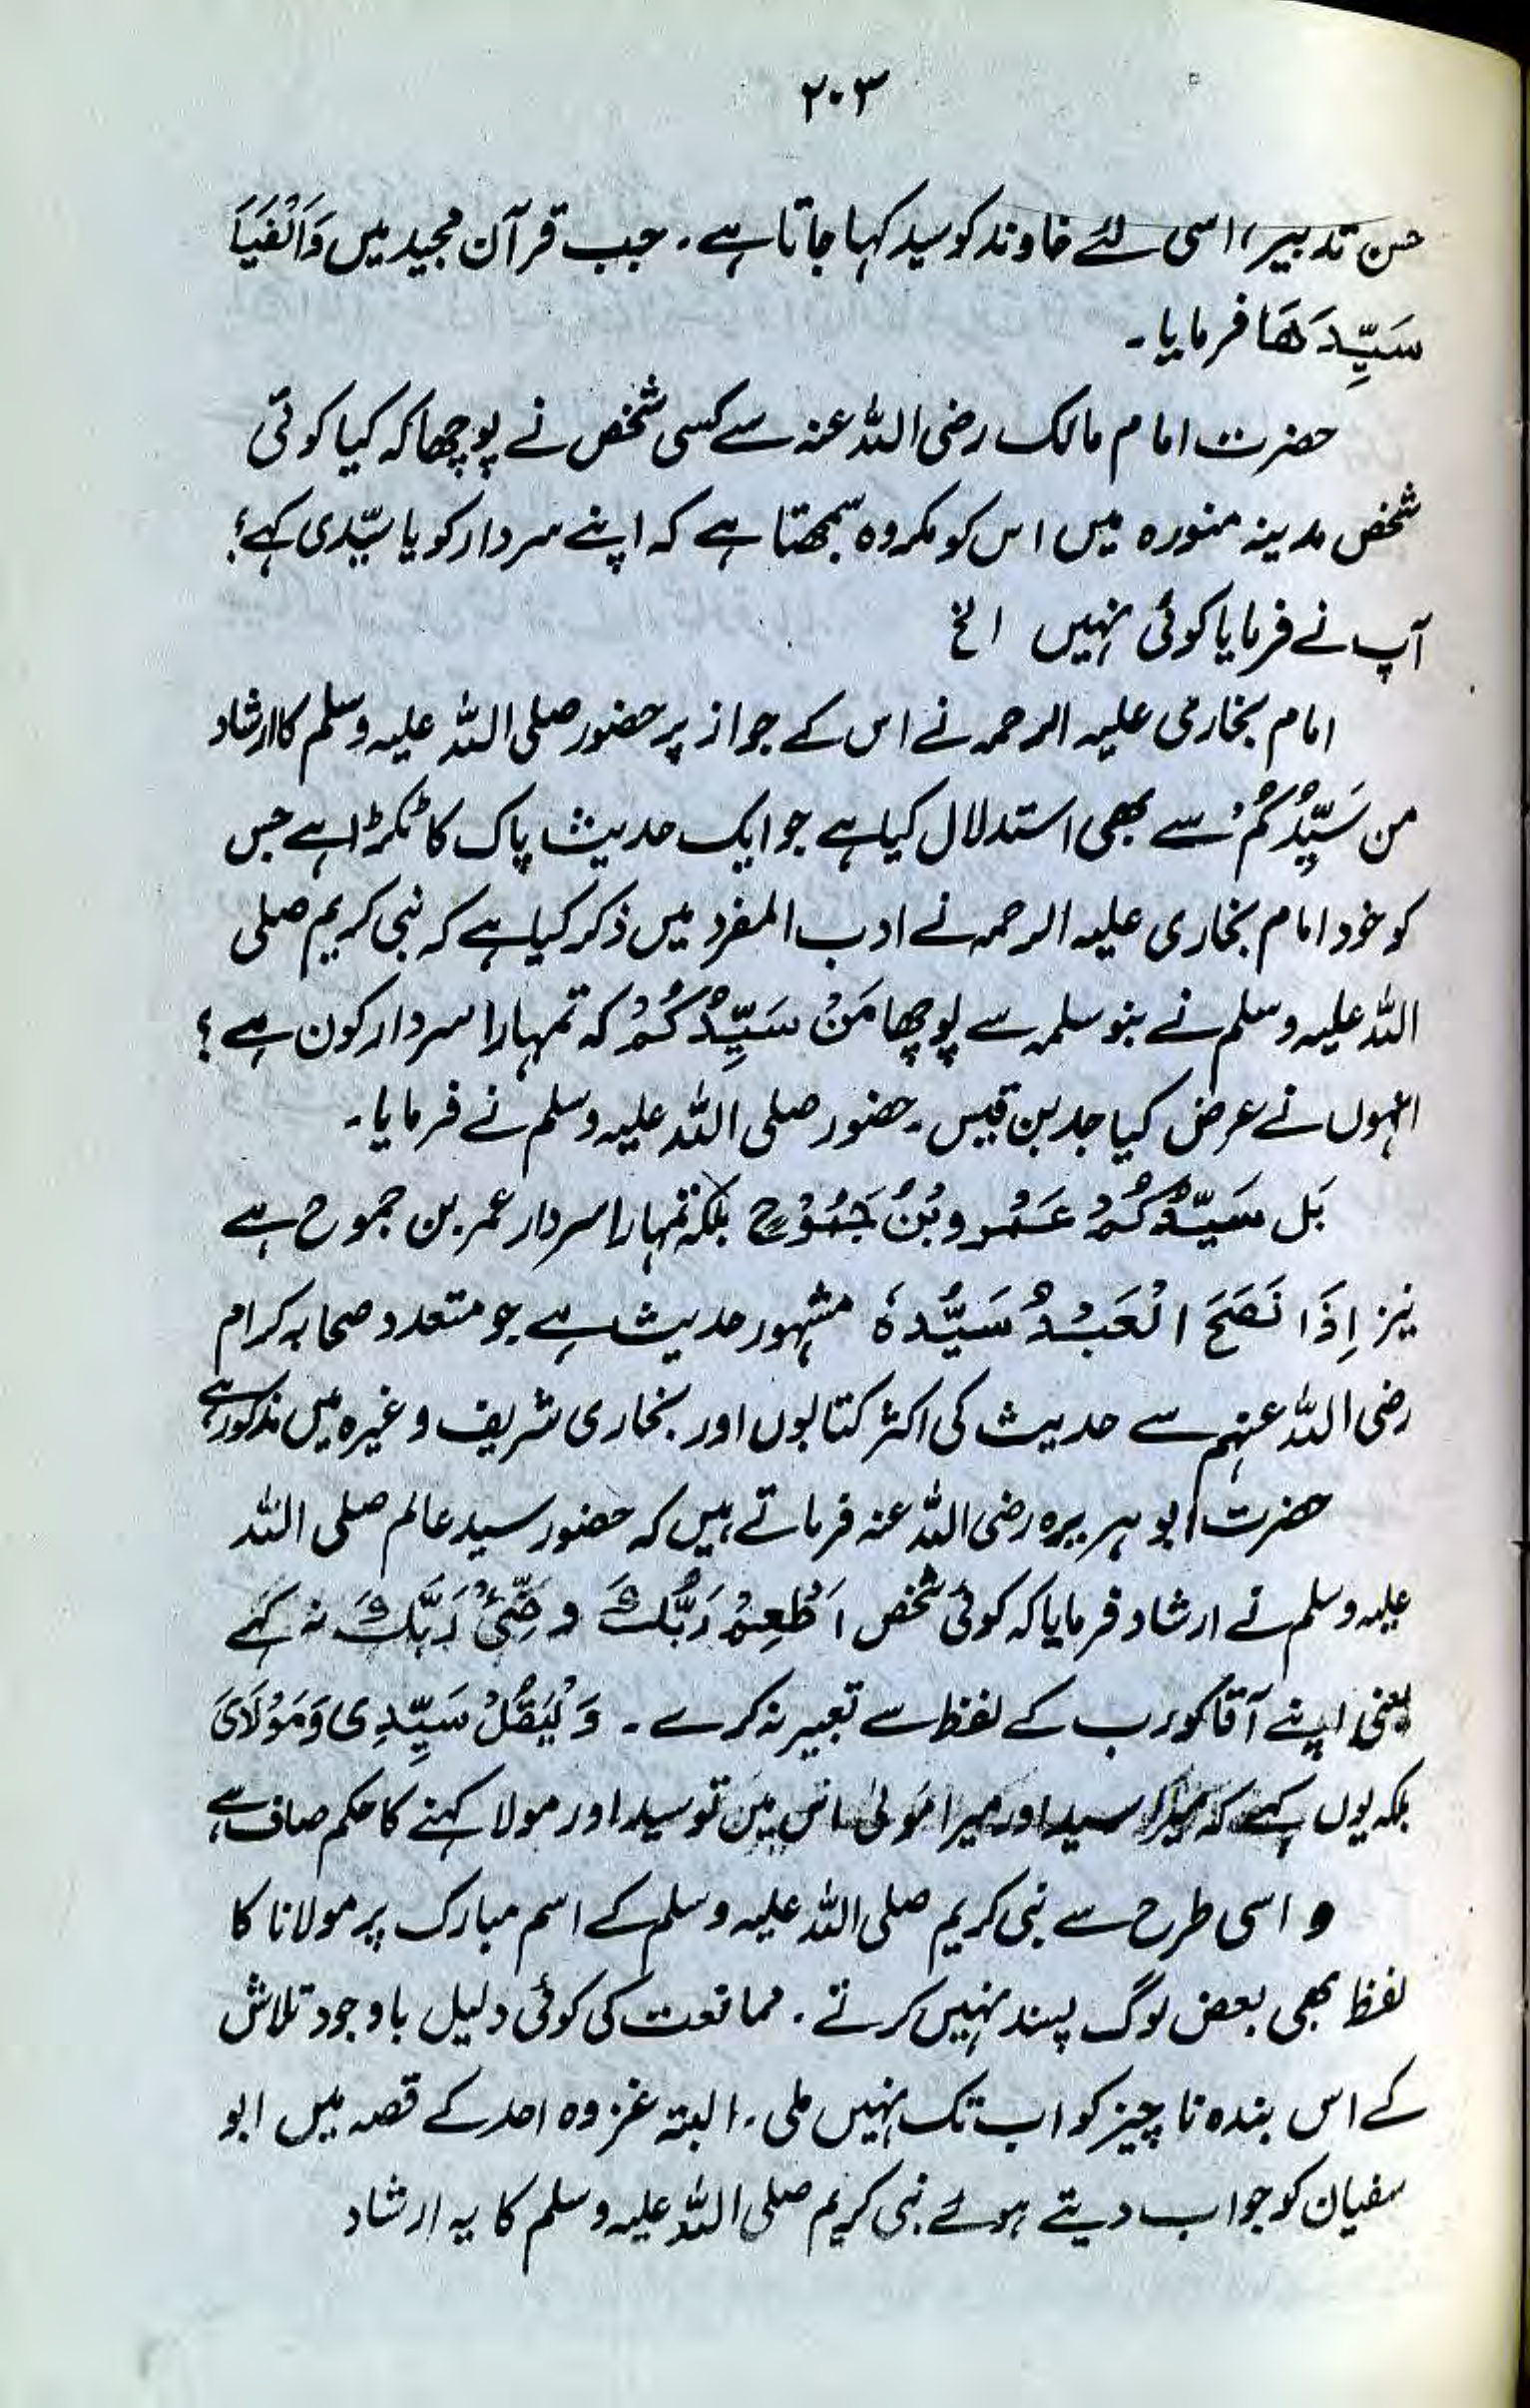 ۲۰۳
حسن تدبیر، اسی لئے خاوند کو سید کہا جاتا ہے۔ جب قرآن مجید میں وَاَلْفَیَا
سَیِّدَھَا فرمایا۔
حضرت امام مالک رضی اللہ عنہ سے کسی شخص نے پوچھا کہ کیا کوئی
شخص مدینہ منورہ میں اس کو مکروہ سمجھتا ہے کہ اپنے سردار کو یا سیّدی کہے؟
آپ نے فرمایا کوئی نہیں الخ
امام بخاری علیہ الرحمہ نے اس کے جواز پر حضور صلی اللہ علیہ وسلم کا ارشاد
من سَیِّدُکُمْ سے بھی استدلال کیا ہے جو ایک حدیث پاک کا ٹکڑا ہے جس
کو خود امام بخاری علیہ الرحمہ نے ادب المفرد میں ذکر کیا ہے کہ نبی کریم صلی
اللہ علیہ وسلم نے بنو سلمہ سے پوچھا مَنْ سَیِّدُکُمْ کہ تمہارا سردار کون ہے؟
انہوں نے عرض کیا جد بن قیس۔ حضور صلی اللہ علیہ وسلم نے فرمایا۔
بَل سَیِّدُکُمْ عَمْرو بْنُ جَمُوْحٍ بلکہ تمہارا سردار عمر بن جموح ہے
نیز اِذَا نَصَحَ الْعَبْدُ سَیُّدہٗ مشہور حدیث ہے جو متعدد صحابہ کرام
رضی اللہ عنہم سے حدیث کی اکثر کتابوں اور بخاری شریف وغیرہ میں مذکور ہے
حضرت ابو ہریرہ رضی اللہ عنہ فرماتے ہیں کہ حضور سید عالم صلی اللہ
علیہ وسلم نے ارشاد فرمایا کہ کوئی شخص اَطْعِمْ رَبَّكَ و رَبَّكَ نہ کہے
یعنی اپنے آقا کو رب کے لفظ سے تعبیر نہ کرے۔ وَلْیَقُلْ سَیِّدِی وَمَوْلَایَ
بلکہ یوں کہے کہ میرا سید اور میرا مَولیٰ تو سید اور مولا کہنے کا حکم صاف ہے
و اسی طرح سے نبی کریم صلی اللہ علیہ وسلم کے اسم مبارک پر مولانا کا
لفظ بھی بعض لوگ پسند نہیں کرتے۔ ممانعت کی کوئی دلیل باوجود تلاش
کے اس بندہ ناچیز کو اب تک نہیں ملی۔ البتہ غزوہ احد کے قصہ میں ابو
سفیان کو جواب دیتے ہوئے نبی کریم صلی اللہ علیہ وسلم کا یہ ارشاد